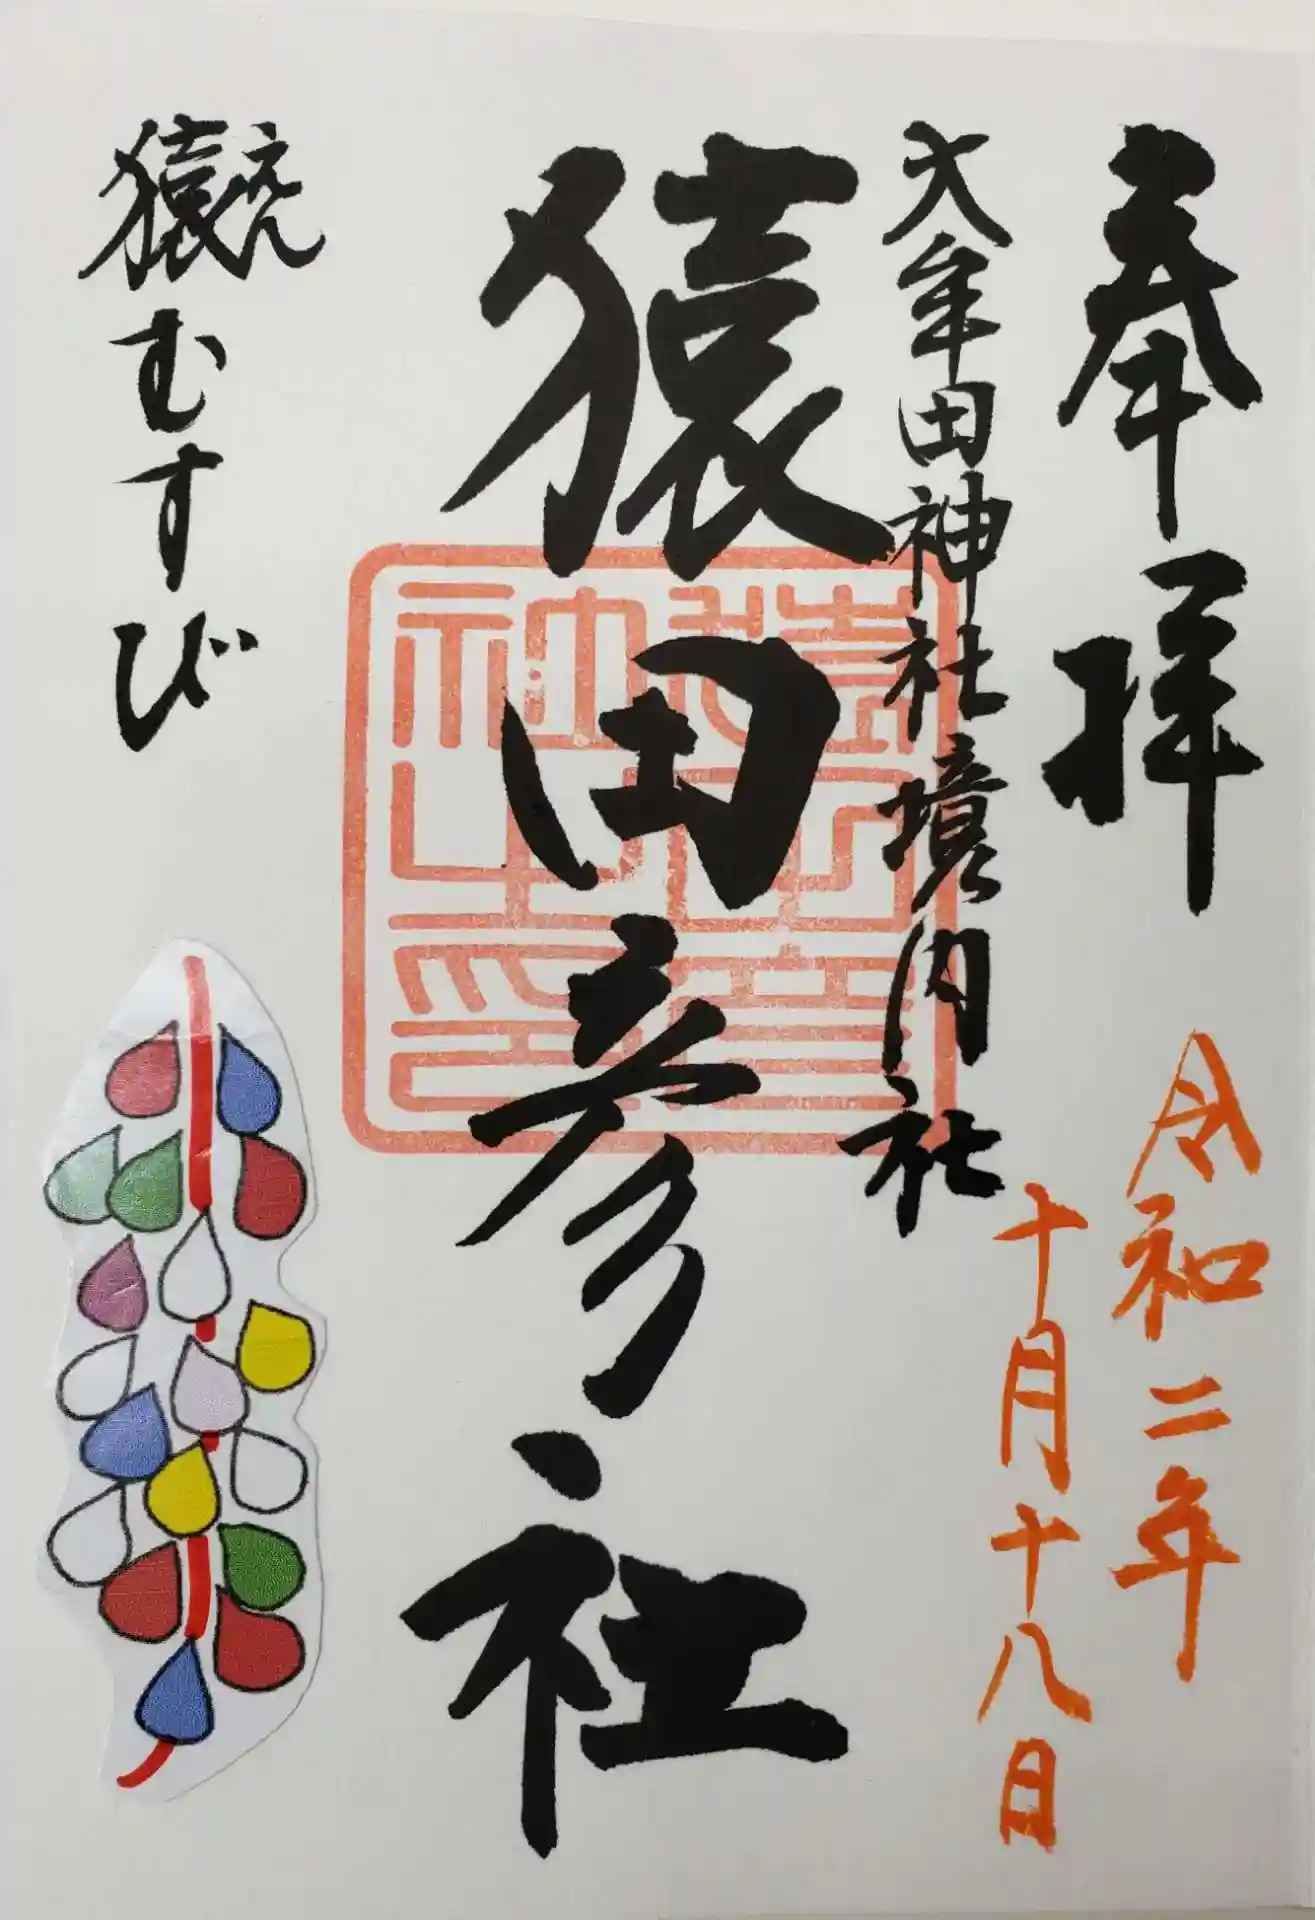 奉拝
令和二年
十月十八日
大牟田神社境内社
猿田彦社
猿田彦神之印
猿むすび
えん